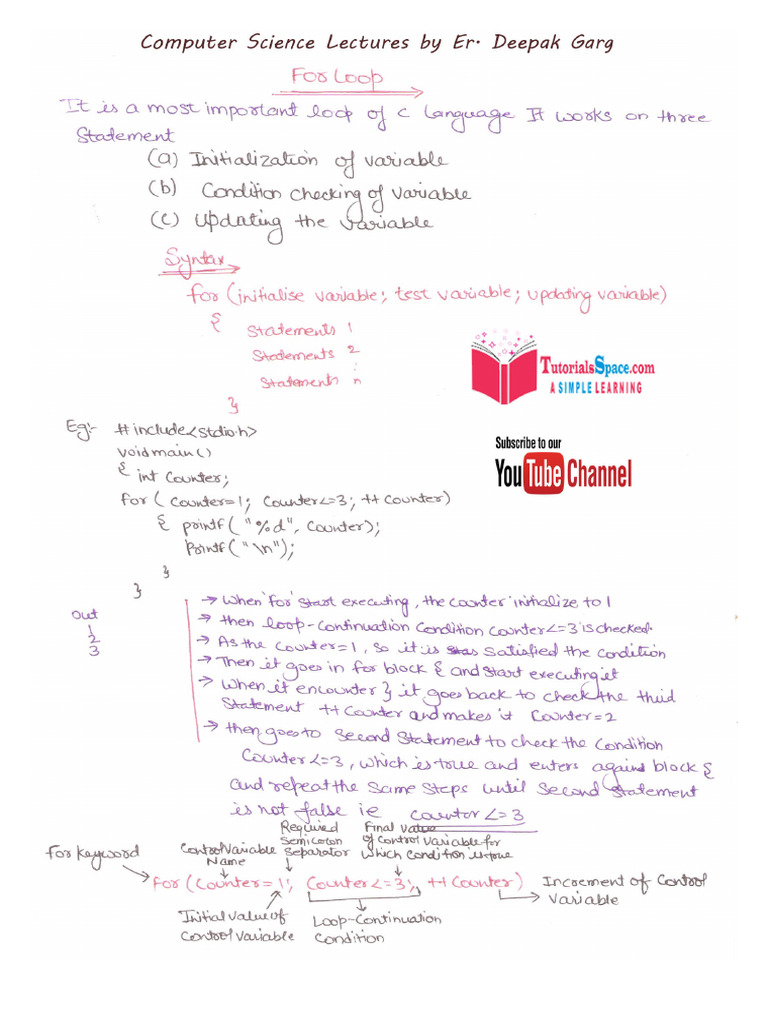 Computer Science Lectures by Er. Deepak Garg
For Loop
It is a most important loop of C language It works on three
Statement
(a) Initialization of variable
(b) Condition checking of variable
(c) Updating the variable
Syntax
for (initialise variable; test variable; updating variable)
{
Statements 1
Statements 2
:
Statements n
}
TutorialsSpace.com
A SIMPLE LEARNING
Eg:- #include<stdio.h>
void main()
{ int Counter;
for ( Counter=1; Counter<=3; ++ Counter)
{ printf( "%d", Counter);
Printf( "\n");
}
}
Subscribe to our
YouTube Channel
out
1
2
3
→ When 'for' start executing, the counter initialize to 1
→ then loop-continuation condition counter<=3 is checked.
→ As the counter=1, so it is satisfied the condition
→ Then it goes in for block { and start executing it
→ When it encounter } it goes back to check the thuid
Statement ++ Counter and makes it Counter=2
→ then goes to second Statement to check the Condition
Counter<=3, which is true and enters again block {
and repeat the same steps until second statement
is not false ie counter<=3
For keyword
Control Variable
Name
Required
Semicolon
Separator
Final Value
of control variable for
which condition is true
for (Counter=1; Counter<=3; ++ Counter)
Increment of Control
Variable
Initial value of
Control Variable
Loop-Continuation
Condition